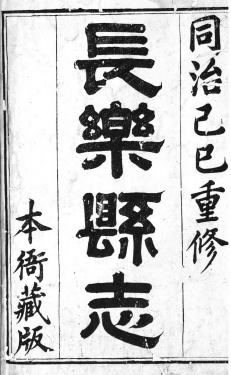 同治己巳重修
長樂縣志
本衙藏版